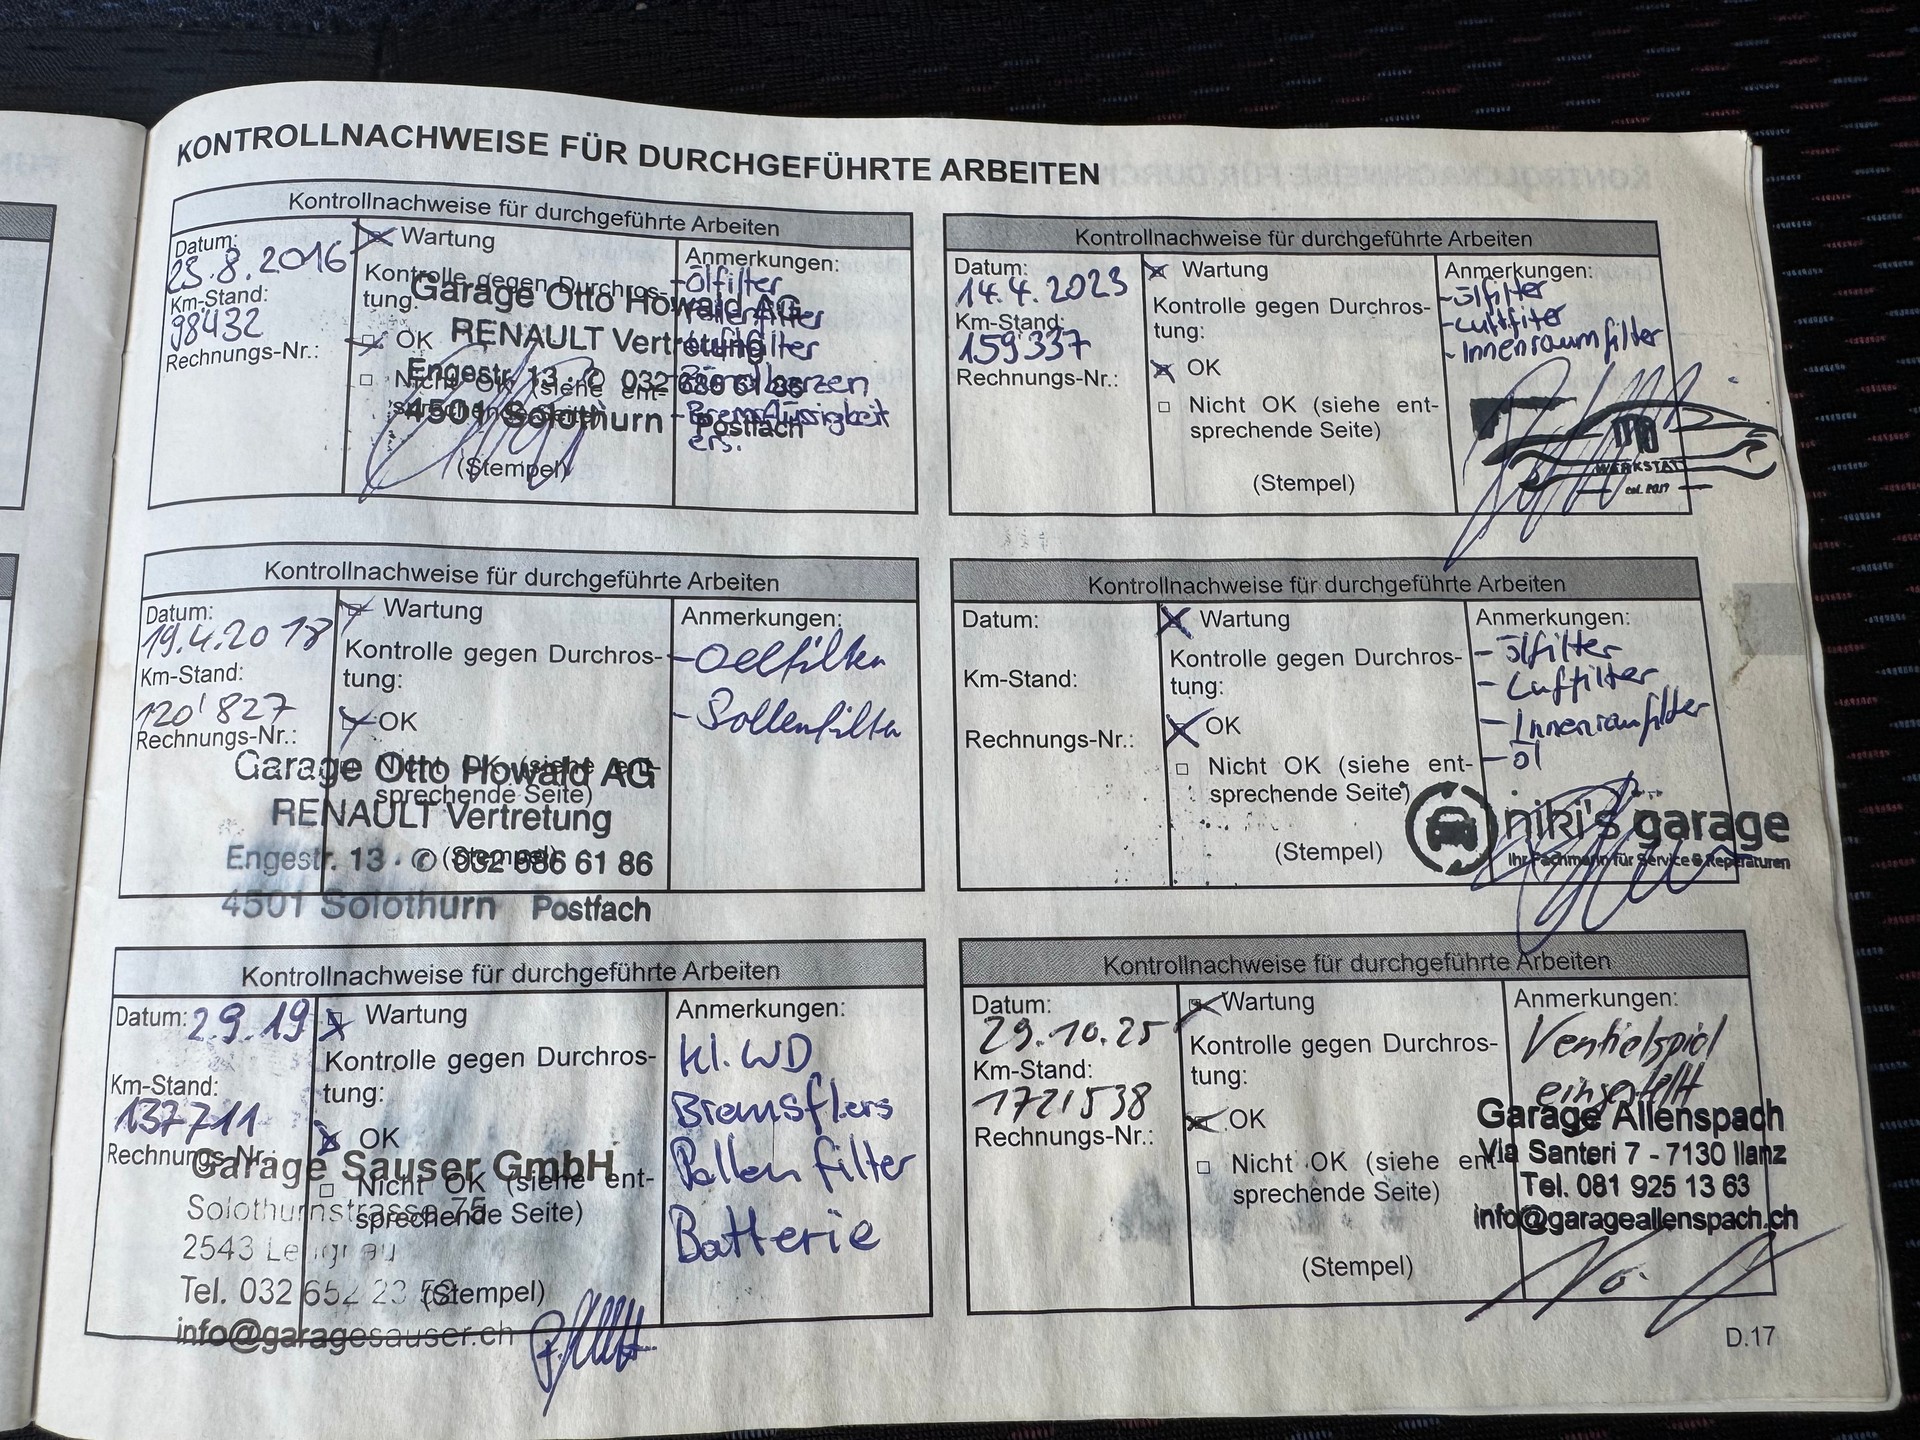 KONTROLLNACHWEISE FÜR DURCHGEFÜHRTE ARBEITEN
Kontrollnachweise für durchgeführte Arbeiten
Datum:
25.8.2016
Km-Stand:
98432
Rechnungs-Nr.:
Wartung
Kontrolle gegen Durchros-
tung:
OK
Nicht OK (siehe ent-
sprechende Seite)
(Stempel)
Garage Otto Howald AG
RENAULT Vertretung
Engestr. 13 · ✆ 032 686 61 86
4501 Solothurn Postfach
Anmerkungen:
- Ölfilter
- Pollenfilter
- Luftfilter
- Zündkerzen
- Bremsflüssigkeit
ers.
Kontrollnachweise für durchgeführte Arbeiten
Datum:
19.4.2018
Km-Stand:
120'827
Rechnungs-Nr.:
Wartung
Kontrolle gegen Durchros-
tung:
OK
Nicht OK (siehe ent-
sprechende Seite)
(Stempel)
Garage Otto Howald AG
RENAULT Vertretung
Engestr. 13 · ✆ 032 686 61 86
4501 Solothurn Postfach
Anmerkungen:
- Oelfilter
- Pollenfilter
Kontrollnachweise für durchgeführte Arbeiten
Datum: 2.9.19
Km-Stand:
137711
Rechnungs-Nr.:
Wartung
Kontrolle gegen Durchros-
tung:
OK
Nicht OK (siehe ent-
sprechende Seite)
(Stempel)
Garage Sauser GmbH
Solothurnstrasse 75
2543 Lengnau
Tel. 032 652 23 52
info@garagesauser.ch
Anmerkungen:
Kl. WD
Bremsfl.ers
Pollen filter
Batterie
Kontrollnachweise für durchgeführte Arbeiten
Datum:
14.4.2023
Km-Stand:
159337
Rechnungs-Nr.:
Wartung
Kontrolle gegen Durchros-
tung:
OK
Nicht OK (siehe ent-
sprechende Seite)
(Stempel)
Anmerkungen:
- Ölfilter
- Luftfilter
- Innenraumfilter
WERKSTATT
est. 2017
Kontrollnachweise für durchgeführte Arbeiten
Datum:
Km-Stand:
Rechnungs-Nr.:
Wartung
Kontrolle gegen Durchros-
tung:
OK
Nicht OK (siehe ent-
sprechende Seite)
(Stempel)
Anmerkungen:
- Ölfilter
- Luftfilter
- Innenraumfilter
- Öl
niki's garage
Ihr Fachmann für Service & Reparaturen
Kontrollnachweise für durchgeführte Arbeiten
Datum:
29.10.25
Km-Stand:
172'538
Rechnungs-Nr.:
Wartung
Kontrolle gegen Durchros-
tung:
OK
Nicht OK (siehe ent-
sprechende Seite)
(Stempel)
Anmerkungen:
Ventielspiel
eingestellt
Garage Allenspach
Via Santeri 7 - 7130 Ilanz
Tel. 081 925 13 63
info@garageallenspach.ch
D.17